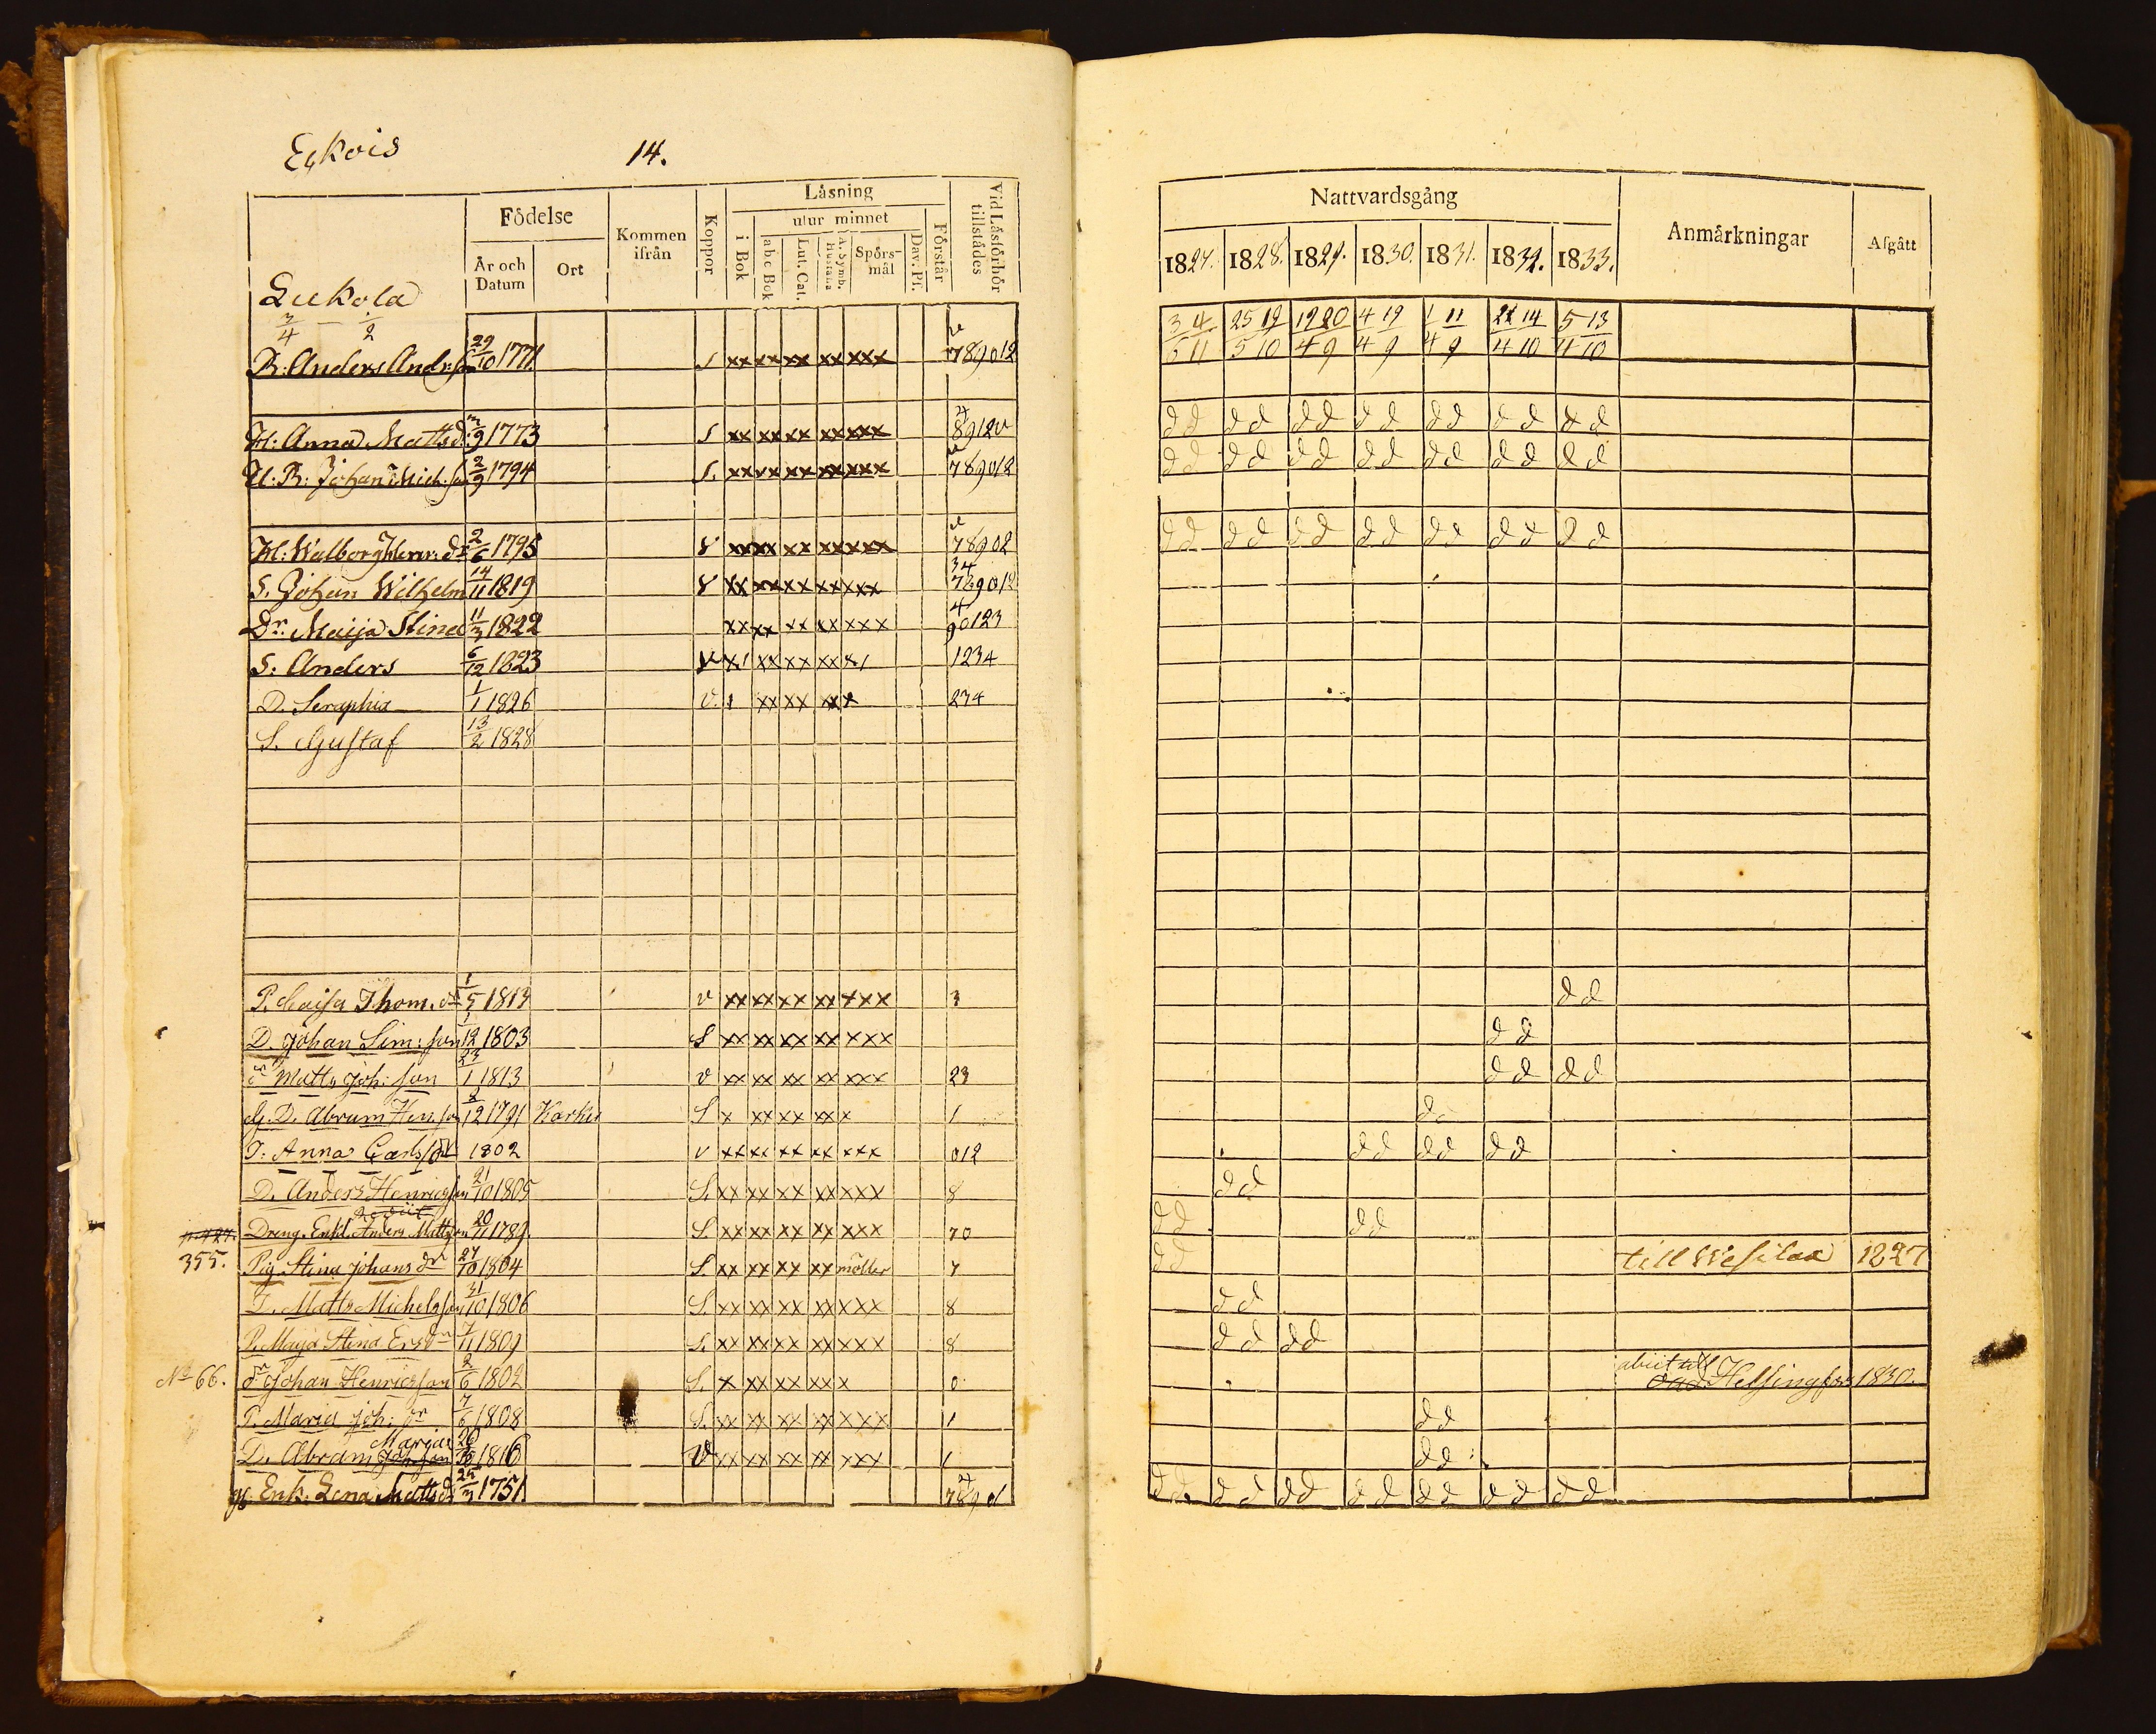 Eckois 14.
Födelse
Kommen ifrån
Koppor
Läsning
utur minnet
i Bok
abc Bok
Lut. Cat.
A. Symb. Hustafla
Spörsmål
Dav. Ps.
Förstår
Vid Läsförhör tillstådes
År och Datum
Ort
Lukola
3/4 — 1/2
B: Anders Andr:son 29/10 1771 S xx xx xx xx xxx 789012
H: Anna Mattsd: 1773 S xx xx xx xx xxx 8912v
U: B: Johan Mich:son 2/9 1794 S. xx xx xx xx xxx 789012
H: Walborg Henr: dr 2/6 1795 xx xx xx xx xxx 78902
34
S. Johan Wilhelm 14/11 1819 xx xx xx xx xxx 789012
4
Dr. Maija Stina 11/3 1822 xx xx xx xx xxx 90123
S: Anders 6/12 1823 v x/ xx xx xx x/ 1234
D. Seraphia 1/1 1826 v. xx xx xx x 234
S. Gustaf 13/2 1828
P. Caisa Thom. dr 1/5 1813 v xx xx xx xx xxx 3
D. Johan Sim: son 1/12 1803 S xx xx xx xx xxx
dr Matts Joh: son 23/1 1813 v xx xx xx xx xxx 23
G. D. Abram Hen. son 2/12 1791 Karkku S x xx xx xx x 1
P: Anna Carlsdr 1802 v xx xx xx xx xxx 012
D. Anders Henricsson 21/10 1805 S. xx xx xx xx xxx 8
Rediit
p. 427. Dreng. Enkl. Anders Mattsson 20/11 1789. S. xx xx xx xx xxx 70
355. Pig. Stina Johans dr 27/10 1804 S. xx xx xx xx möller 7
D. Matts Michelsson 31/10 1806 S. xx xx xx xx xxx 8
P. Maja Stina Ersdr 7/11 1809 S. xx xx xx xx xxx 8
No 66. dr Johan Henricsson 2/6 1802 S. x xx xx xx x 0
P. Maria Joh: dr 7/6 1808 S. xx xx xx xx xxx 1
Marjae
D. Abram Johsson 26/10 1816 v xx xx xx xx xxx 1
gl. Enk. Lena Mattsd: 25/3 1751. 789 01
Nattvardsgång
Anmärkningar
Afgått
1827. 1828. 1829. 1830. 1831. 1832. 1833.
3/6 4/11 25/5 19/10 19/4 20/9 4/4 19/9 1/4 11/9 22/4 14/10 5/4 13/10
d d d d d d d d d d d d d d
d d d d d d d d d d d d d d
d d d d d d d d d d d d d d
d d
d d
d d d d
d d
d d d d d d
d d
d d d d
d d till Wesilax 1827
d d
d d d d
abiit till Helsingfors 1830.
d d
d d
d d d d d d d d d d d d d d